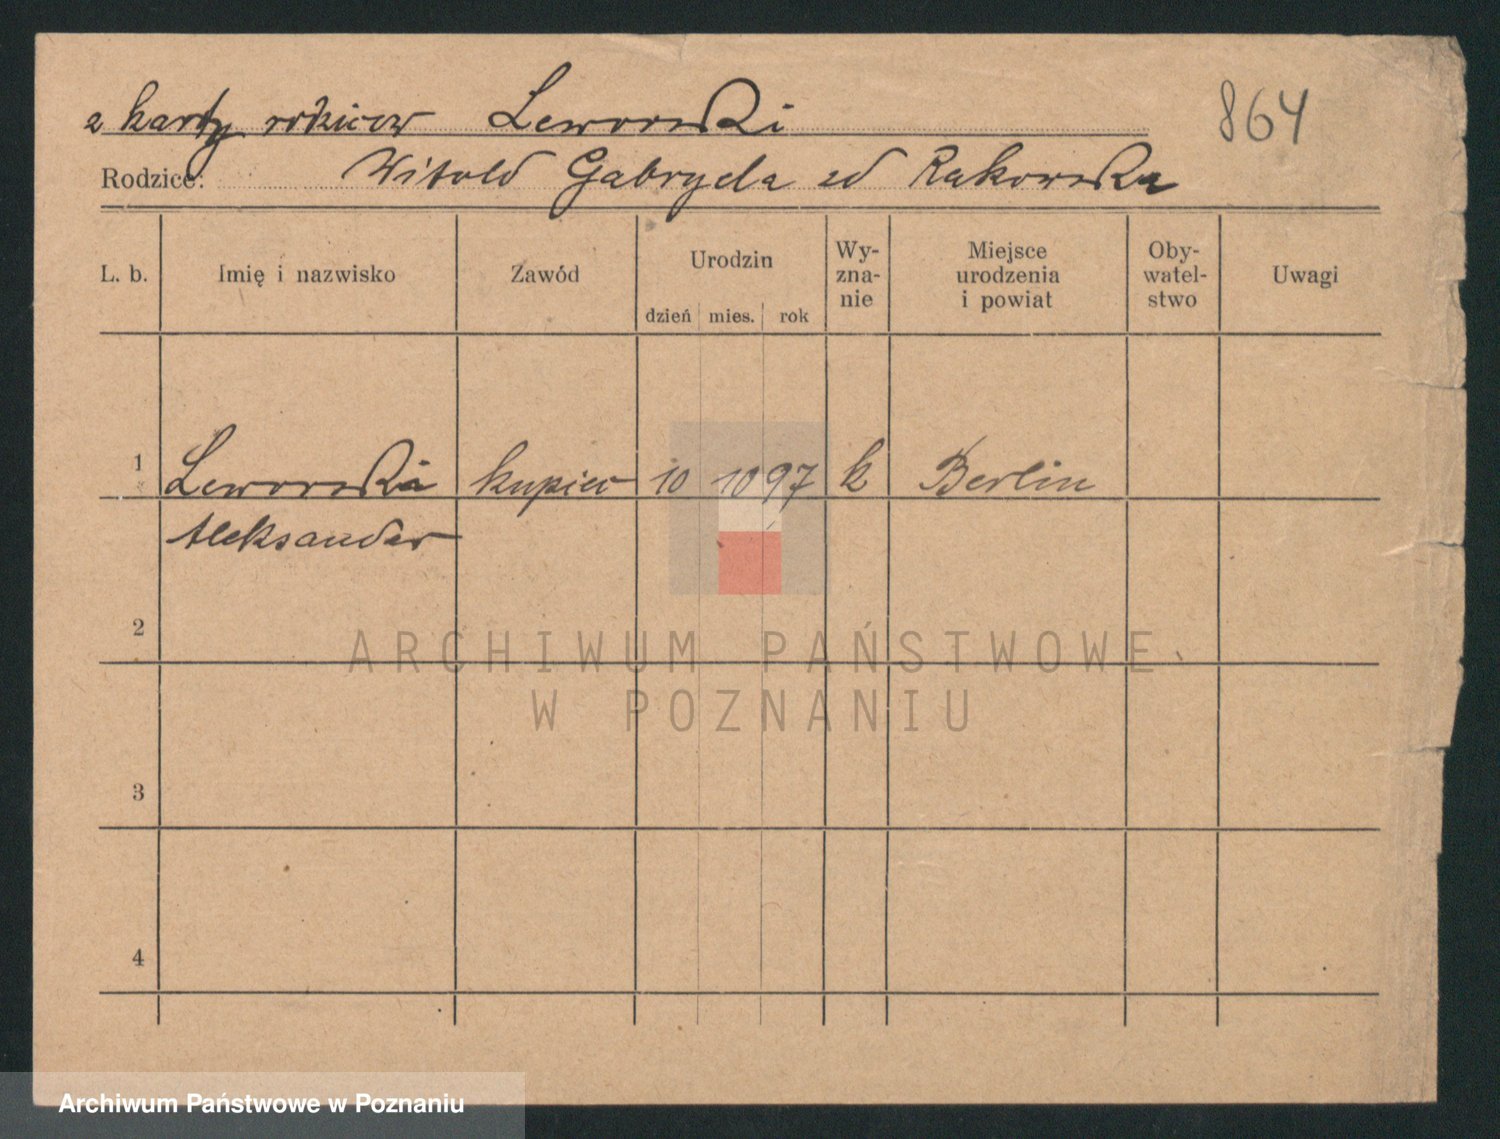 z karty rodziców Leworski
864
Rodzice: Witold Gabryela zd Rakowska
L. b. Imię i nazwisko Zawód Urodzin dzień mies. rok Wy- zna- nie Miejsce urodzenia i powiat Oby- watel- stwo Uwagi
1 Leworski kupiec 10 10 97 k Berlin
Aleksander
2
3
4
ARCHIWUM PAŃSTWOWE
W POZNANIU
Archiwum Państwowe w Poznaniu